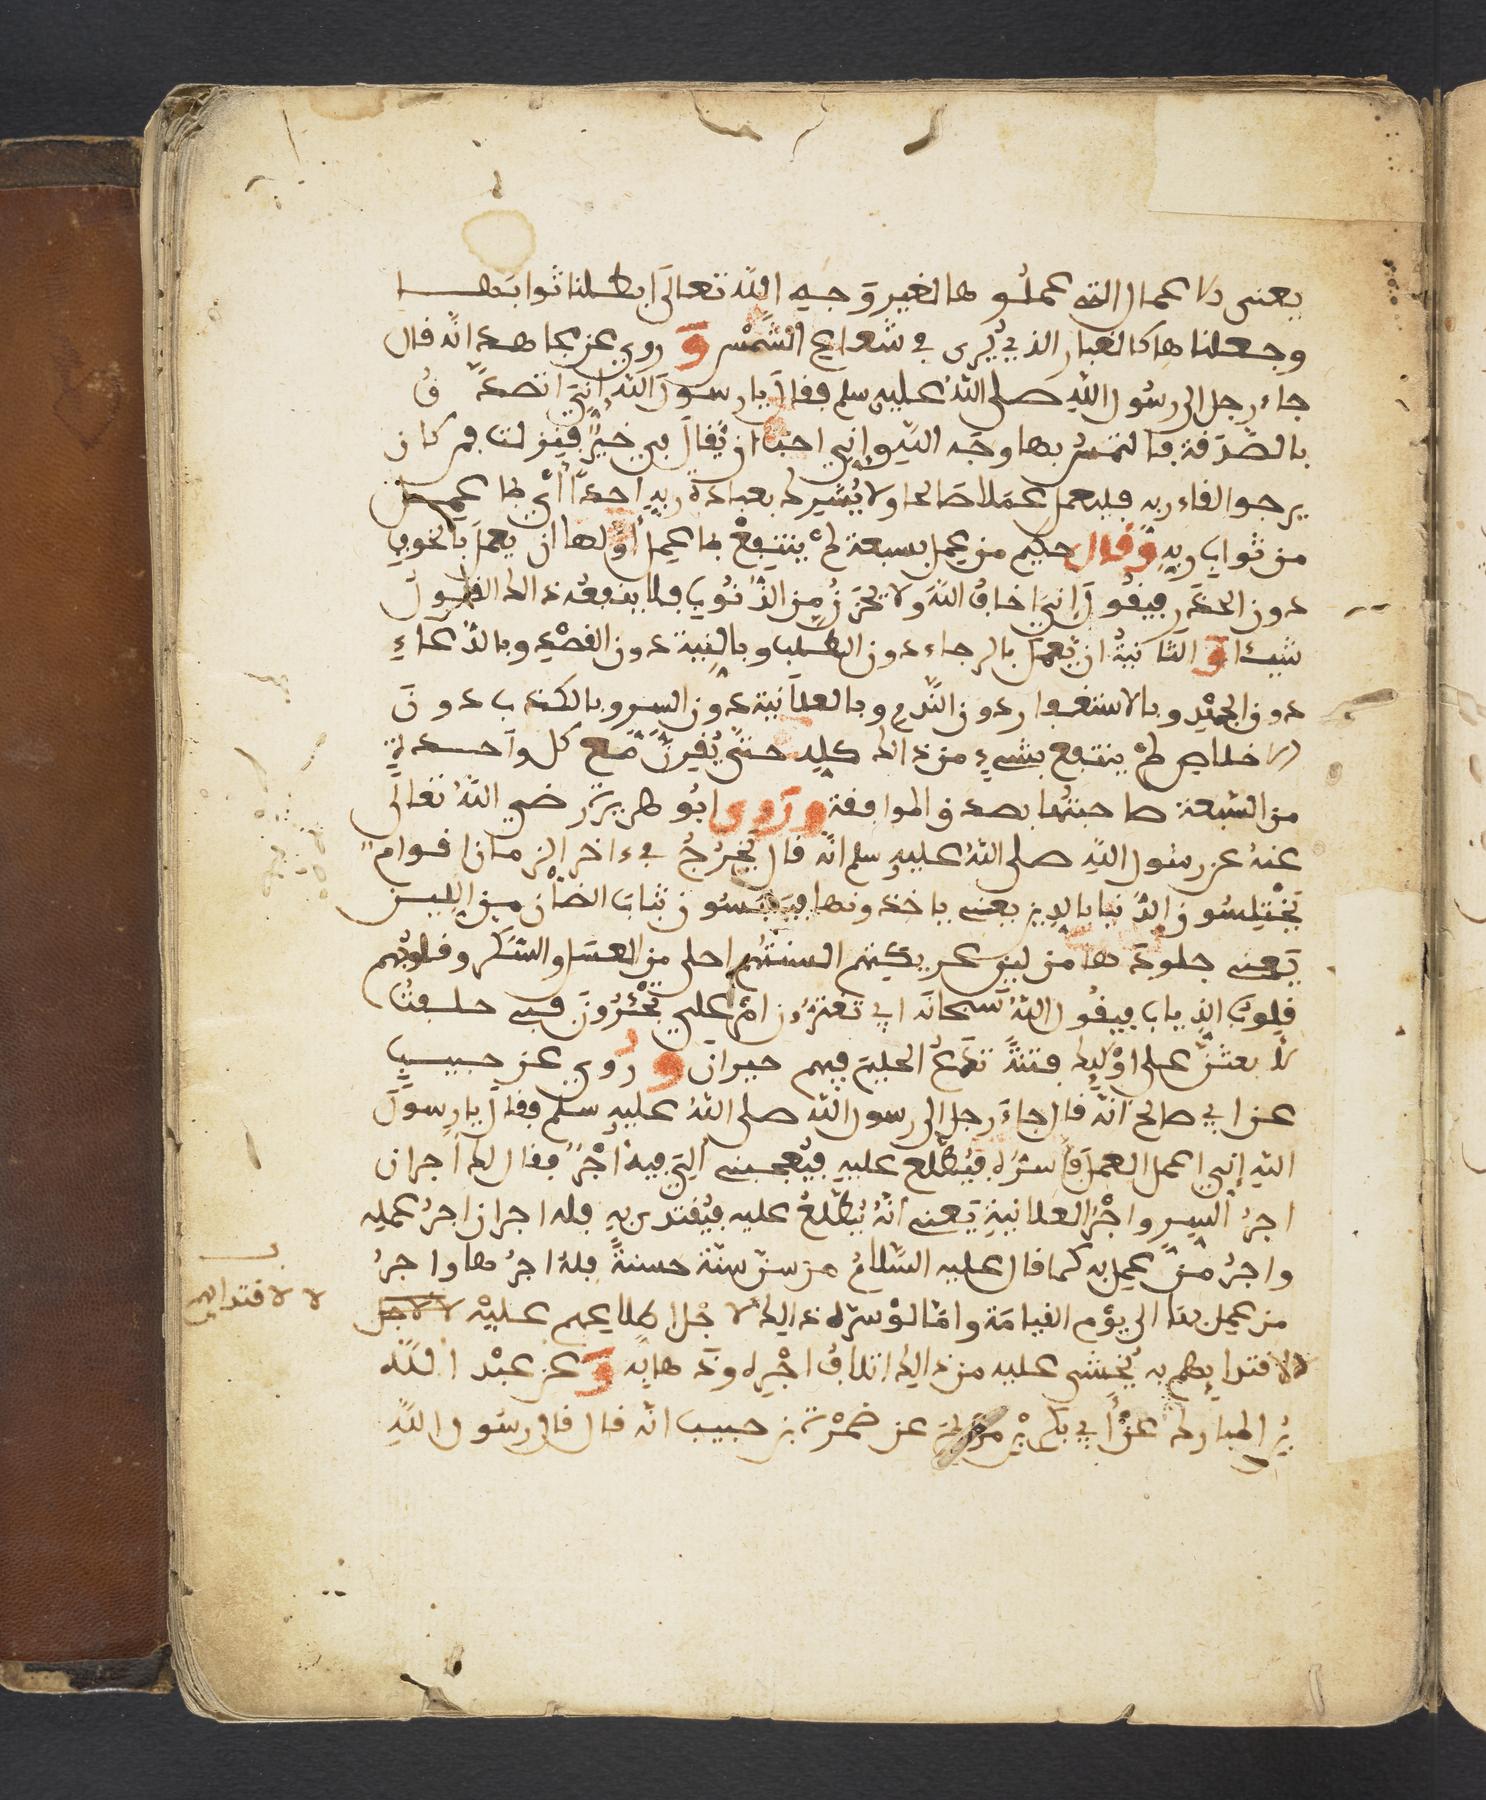 يعنى الاعمال التى عملوها لغير وجه الله تعالى ابطلنا ثوابها
وجعلناها كالغبار الذي يُرى في شعاع الشمس وروي عن مجاهد انه قال
جاء رجل الى رسول الله صلى الله عليه وسلم فقال يا رسول الله إني اتصدق
بالصدقة فالتمس بها وجه الله واني احب ان يقال في خيرا فنزلت فمن كان
يرجوا لقاء ربه فليعمل عملا صالحا ولا يشرك بعبادة ربه احدا أي ما عمل
من ثواب ربه وقال حكيم من عمل بسبعة لم ينتفع بما عمل أولها ان يعمل بالخوف
دون الحذر فيقول إني اخاف الله ولا يحذر من الذنوب فلا ينفعه ذالك القول
شيئا والثانية ان يعمل بالرجاء دون الطلب وبالنية دون القصد وبالدعاء
دون الجهد وبالاستغفار دون الندم وبالعلانية دون السر وبالكد دون
الاخلاص لم ينتفع بشيء من ذالك كله حتى يقرن مع كل واحدة
من السبعة صاحبتها بصدق الموافقة وروى ابو هريرة رضي الله تعالى
عنه عن رسول الله صلى الله عليه وسلم انه قال يخرج في ءاخر الزمان اقوام
يختلسون الدنيا بالدين يعنى ياخذونها فيلبسون ثياب الضأن من اللين
يعنى جلودها من لين عريكتهم السنتهم احلى من العسل والسكر وقلوبهم
قلوب الذياب فيقول الله سبحانه ابي تغترون ام علي تجترءون فبي حلفت
لأبعثن على اوليك فتنة تدع الحليم فيهم حيران وروي عن حبيب
عن ابي صالح انه قال جاء رجل الى رسول الله صلى الله عليه وسلم فقال يا رسول
الله إني اعمل العمل فاسره فيطلع عليه فيعجبنى ألي فيه أجر فقال لك اجران
اجر السر واجر العلانية يعنى انه يطلع عليه فيقتدى به فله اجران اجر عمله
واجر من عمل به كما قال عليه السلام من سن سنة حسنة فله اجرها واجر
من عمل بها الى يوم القيامة واما لو سره ذالك لا جل اطلاعهم عليه لا لاجل
لا لاقتدايهم
الاقتدايهم به يخشى عليه من ذالك اتلاف اجره وذهابه وعن عبد الله
بن المبارك عن أبي بكر بن مريم عن ضمرة بن حبيب انه قال قال رسول الله